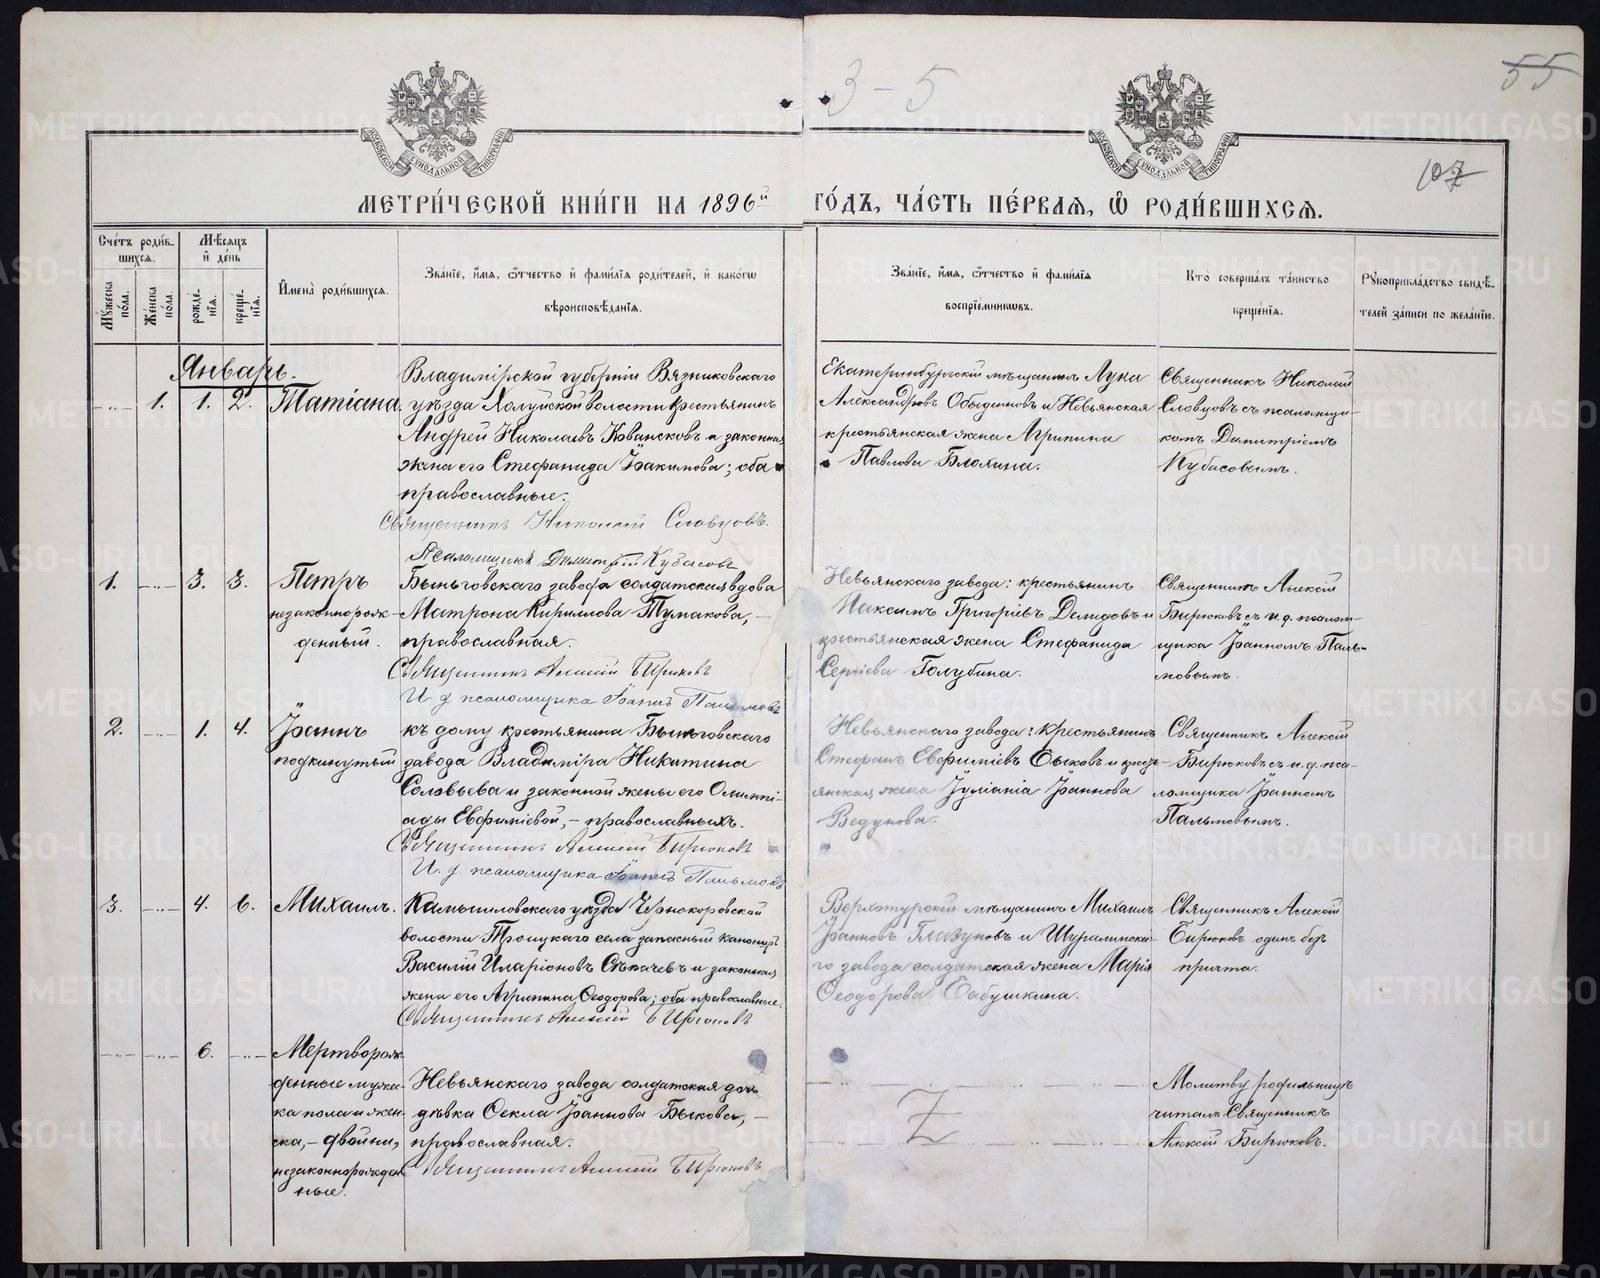 3 – 5
55
107
МОСКОВСКОЙ СУНОДАЛЬНОЙ ТИПОГРАФІИ
МОСКОВСКОЙ СУНОДАЛЬНОЙ ТИПОГРАФІИ
МЕТРИ́ЧЕСКОЙ КНИ́ГИ НА 1896й ГО́ДЪ, ЧА́СТЬ ПЕ́РВАЯ, Ѿ РОДИ́ВШИХСЯ.
Сче́тъ роди́в-
шихся.
Мꙋ́жеска по́ла.
Же́нска по́ла.
Мѣ́сяцъ
и҆ де́нь
рожде-
нія.
креще-
нія.
И҆мена̀ роди́вшихся.
Зва́нїе, и҆́мя, ѻ҆́тчество и҆ фами́лїя роди́телей, и҆ како́гѡ
вѣроисповѣ́данїя.
Зва́нїе, и҆́мя, ѻ҆́тчество и҆ фами́лїя
воспрїе́мникѡвъ.
Кто̀ соверша́лъ та́инство
креще́нїя.
Рꙋкоприкла́дство свидѣ́-
телей за́писи по жела́нїю.
Январь.
1. 1. 2. Татіана.
Владимірской губерніи Вязниковскаго
уѣзда Холуйской волости крестьянинъ
Андрей Николаевъ Ковансковъ и законная
жена его Стефанида Іоакимова; оба
православные.
Священникъ Николай Словцовъ.
Псаломщикъ Димитрій Кубасовъ
Екатеринбургскій мѣщанинъ Лука
Александровъ Обыденновъ и Невьянская
крестьянская жена Агрипина
Павлова Блохина.
Священникъ Николай
Словцовъ съ псаломщи-
комъ Димитріемъ
Кубасовымъ.
1. 3. 3. Петръ
незаконнорож-
денный.
Быньговскаго завода солдатская вдова
Матрона Кирилова Тумакова, –
православная.
Священникъ Алексій Бирюковъ
И. д. псаломщика Іоаннъ Пальмовъ
Невьянскаго завода: крестьянинъ
Максимъ Григоріевъ Демидовъ и
крестьянская жена Стефанида
Сергіева Голубина.
Священникъ Алексій
Бирюковъ съ и. д. псалом-
щика Іоанномъ Паль-
мовымъ.
2. 1. 4. Іоаннъ
подкинутый
къ дому крестьянина Быньговскаго
завода Владиміра Никитина
Соловьева и законной жены его Олимпі-
ады Евфиміевой, – православныхъ.
Священникъ Алексій Бирюковъ
И. д. псаломщика Іоаннъ Пальмовъ
Невьянскаго завода: крестьянинъ
Стефанъ Евфиміевъ Быковъ и кресть-
янская жена Іуліанія Іоаннова
Ведунова.
Священникъ Алексій
Бирюковъ съ и. д. пса-
ломщика Іоанномъ
Пальмовымъ.
3. 4. 6. Михаилъ.
Камышловскаго уѣзда Чернокоровской
волости Троицкаго села запасный канониръ
Василій Иларіоновъ Сѣкачевъ и законная
жена его Агрипина Ѳеодорова; оба православные.
Священникъ Алексій Бирюковъ
Верхотурскій мѣщанинъ Михаилъ
Іоанновъ Глазуновъ и Шуралинска-
го завода солдатская жена Марія
Ѳеодорова Бабушкина.
Священникъ Алексій
Бирюковъ одинъ безъ
причта.
6. Мертворож-
денные муже-
ка пола и жен-
ска, – двойни,
незаконнорожден-
ные.
Невьянскаго завода солдатская дочь
дѣвка Ѳекла Іоаннова Быкова, –
православная.
Священникъ Алексій Бирюковъ
Молитву родильницѣ
читалъ Священникъ
Алексій Бирюковъ.